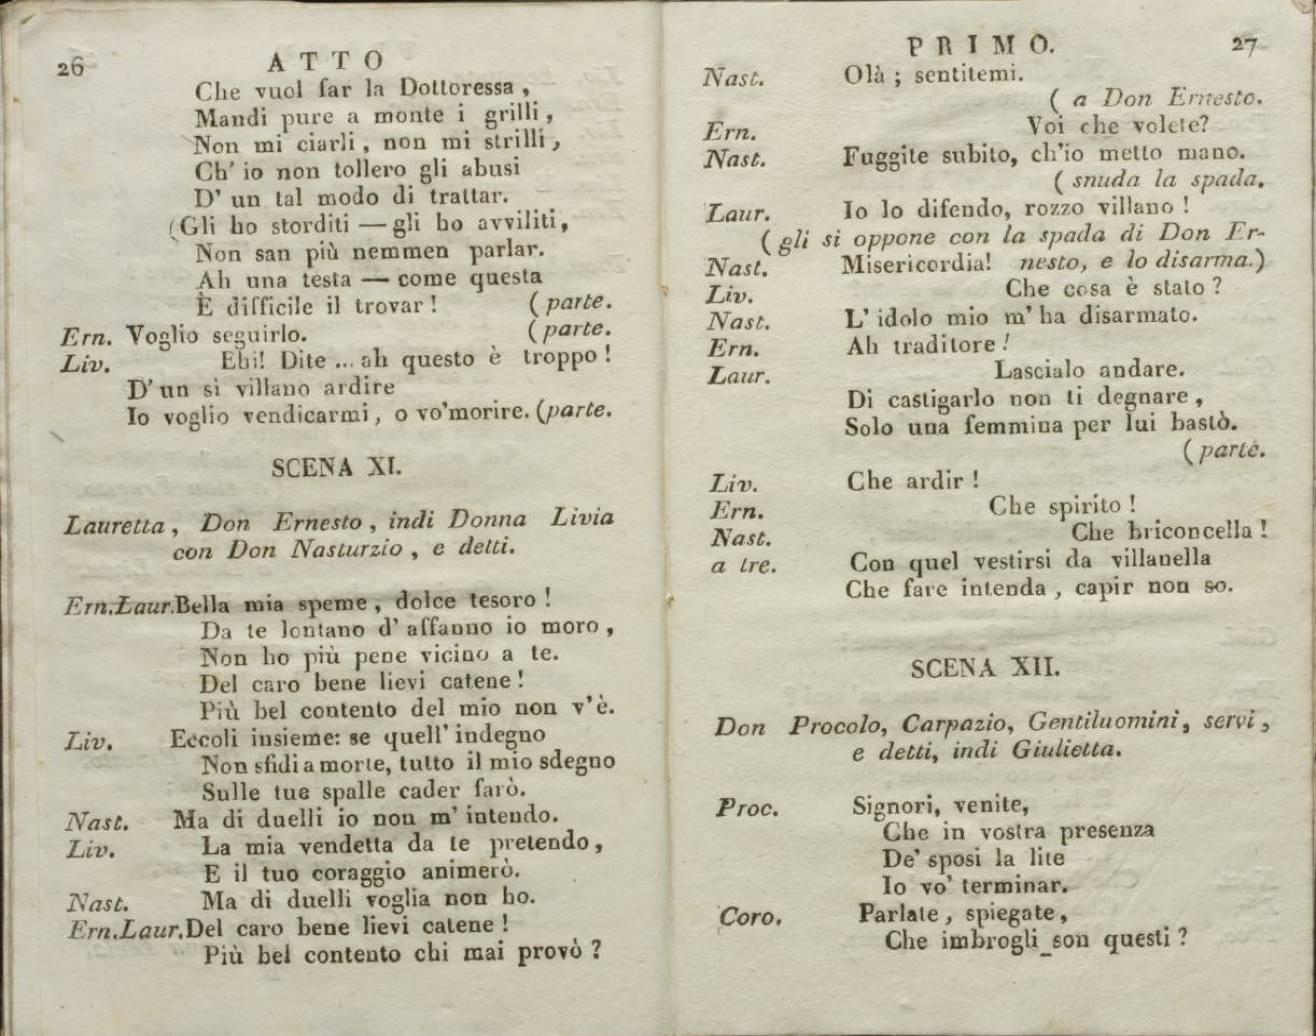 26
ATTO
Che vuol far la Dottoressa,
Mandi pure a monte i grilli,
Non mi ciarli, non mi strilli,
Ch' io non tollero gli abusi
D' un tal modo di trattar.
(Gli ho storditi — gli ho avviliti,
Non san più nemmen parlar.
Ah una testa — come questa
È difficile il trovar! (parte.
Ern. Voglio seguirlo. (parte.
Liv. Ehi! Dite ... ah questo è troppo!
D' un sì villano ardire
Io voglio vendicarmi, o vo'morire. (parte.
SCENA XI.
Lauretta, Don Ernesto, indi Donna Livia
con Don Nasturzio, e detti.
Ern.Laur.Bella mia speme, dolce tesoro!
Da te lontano d' affanno io moro,
Non ho più pene vicino a te.
Del caro bene lievi catene!
Più bel contento del mio non v'è.
Liv. Eccoli insieme: se quell' indegno
Non sfidi a morte, tutto il mio sdegno
Sulle tue spalle cader farò.
Nast. Ma di duelli io non m' intendo.
Liv. La mia vendetta da te pretendo,
E il tuo coraggio animerò.
Nast. Ma di duelli voglia non ho.
Ern.Laur.Del caro bene lievi catene!
Più bel contento chi mai provò?
PRIMO.
27
Nast. Olà; sentitemi.
( a Don Ernesto.
Ern. Voi che volete?
Nast. Fuggite subito, ch'io metto mano.
( snuda la spada.
Laur. Io lo difendo, rozzo villano!
( gli si oppone con la spada di Don Er-
Nast. Misericordia! nesto, e lo disarma.)
Liv. Che cosa è stato?
Nast. L' idolo mio m' ha disarmato.
Ern. Ah traditore!
Laur. Lascialo andare.
Di castigarlo non ti degnare,
Solo una femmina per lui bastò.
( parte.
Liv. Che ardir!
Ern. Che spirito!
Nast. Che briconcella!
a tre. Con quel vestirsi da villanella
Che fare intenda, capir non so.
SCENA XII.
Don Procolo, Carpazio, Gentiluomini, servi,
e detti, indi Giulietta.
Proc. Signori, venite,
Che in vostra presenza
De' sposi la lite
Io vo' terminar.
Coro. Parlate, spiegate,
Che imbrogli son questi?